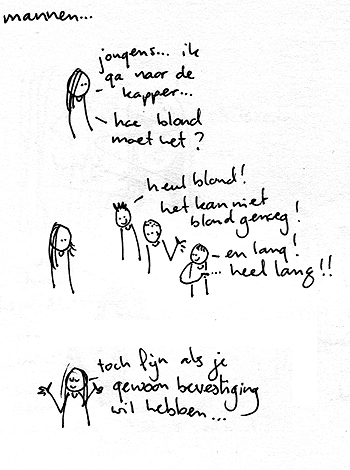 mannen...
jongens... ik
ga naar de
kapper...
hoe blond
moet het?
heul blond!
het kan niet
blond genoeg!
en lang!
... heel lang!!
toch fijn als je
gewoon bevestiging
wil hebben...